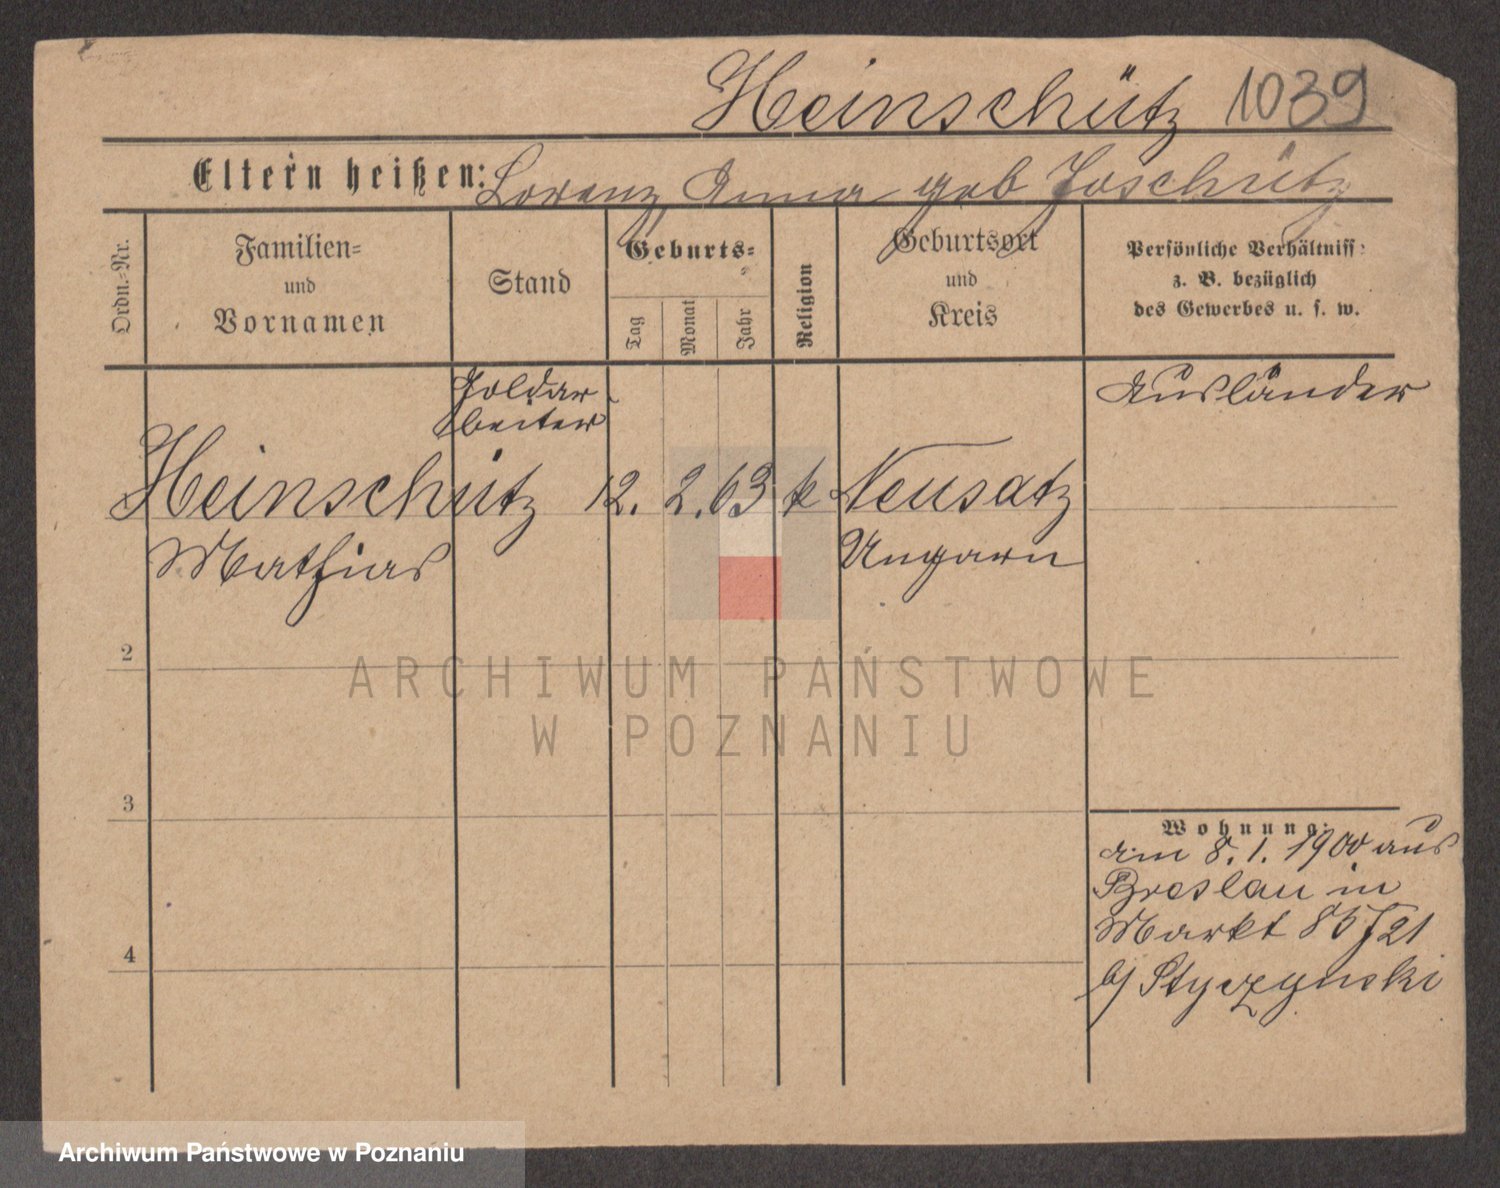 Heinschütz 1039
Eltern heißen: Lorenz Anna geb Joschütz
Ordn.-Nr.
Familien-
und
Vornamen
Stand
Geburts-
Tag
Monat
Jahr
Religion
Geburtsort
und
Kreis
Persönliche Verhältniss
z. B. bezüglich
des Gewerbes u. s. w.
Goldar-
beiter
Ausländer
Heinschütz 12. 2. 63 k Neusatz
Mathias Ungarn
2
ARCHIWUM PAŃSTWOWE
W POZNANIU
3
Wohnung:
am 8. 1. 1900 aus
Breslau in
Markt 85/21
b/ Styczynski
4
Archiwum Państwowe w Poznaniu